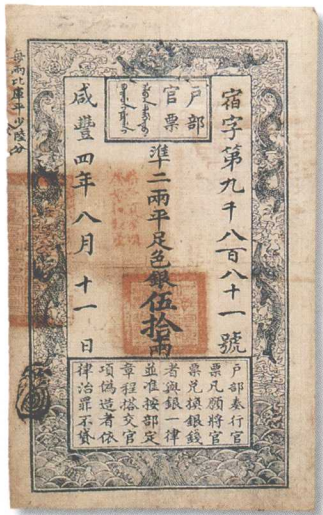 户部
官票
宿字第九千八百八十一號
準二兩平足色銀伍拾兩
咸豐四年八月十一日
戶部奏行官
票凡願將官
票兌換銀錢
者與銀一律
並准按部定
章程搭交官
項偽造者依
律治罪不貸
每兩比庫平少陸分